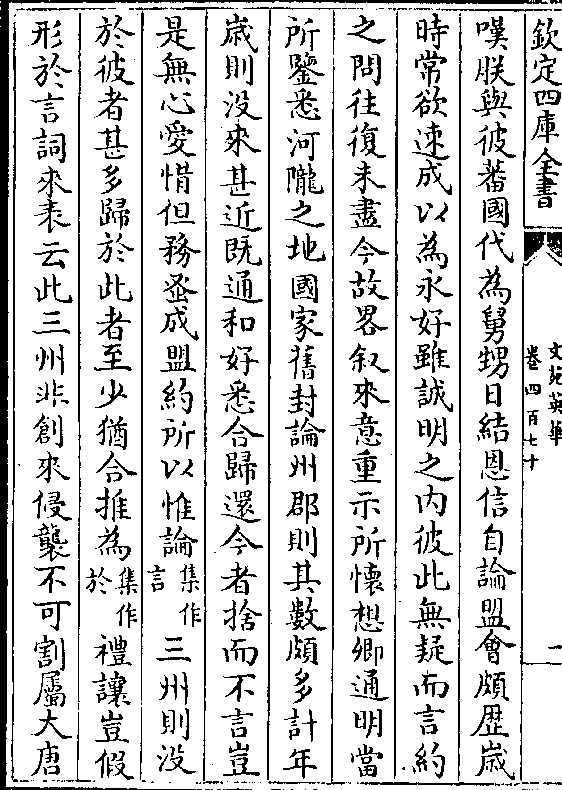 欽定四庫全書
文苑英華
卷四百七十
二
嘆朕與彼蕃國代為舅甥日結恩信自論盟會頗歴歳
時常欲速成以為永好雖誠明之內彼此無疑而言約
之問往復未盡今故畧叙來意重示所懷想卿通明當
所鑒悉河隴之地國家舊封論州郡則其數頗多計年
歳則没來甚近既通和好悉合歸還今者捨而不言豈
是無心愛惜但務蚤成盟約所以惟論集作言三州則没
於彼者甚多歸於此者至少猶合推為集作於禮讓豈假
形於言詞來表云此三州非創來侵襲不可割屬大唐